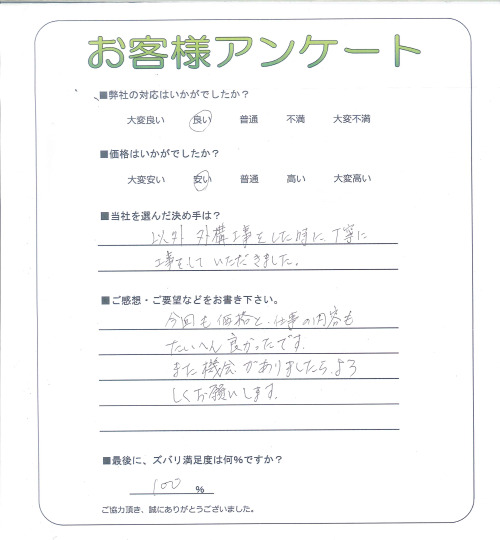 お客様アンケート
■弊社の対応はいかがでしたか？
大変良い 良い 普通 不満 大変不満
■価格はいかがでしたか？
大変安い 安い 普通 高い 大変高い
■当社を選んだ決め手は？
以外 外構工事をした時に丁寧に
工事をしていただきました。
■ご感想・ご要望などをお書き下さい。
今回も価格と、仕事の内容も
たいへん良かったです。
また機会がありましたら、よろ
しくお願いします。
■最後に、ズバリ満足度は何%ですか？
100 %
ご協力頂き、誠にありがとうございました。